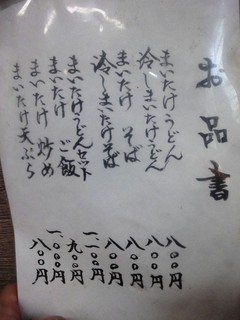 お品書
まいたけうどん 八〇〇円
冷しまいたけうどん 八〇〇円
まいたけ そば 八〇〇円
冷しまいたけそば 八〇〇円
まいたけうどんセット 一一〇〇円
まいたけ ご飯 九〇〇円
まいたけ 炒め 一、〇〇〇円
まいたけ天ぷら 八〇〇円